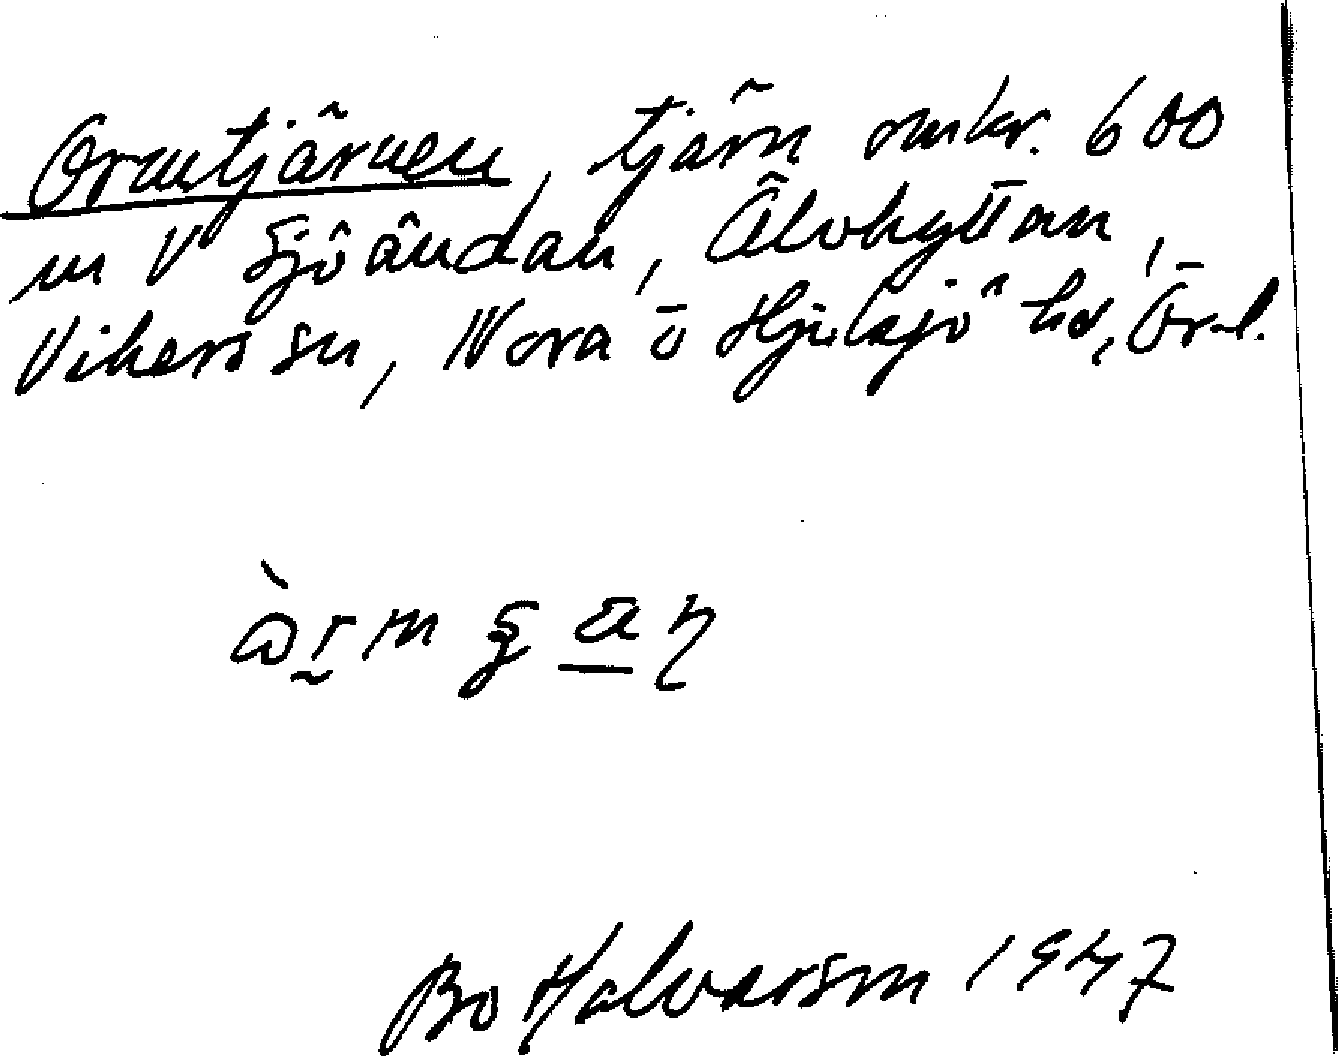 Ormtjärnen, tjärn omkr. 600
m V Sjöändan, Älvhyttan,
Vikers sn, Nora o Hjulsjö hd, Ör. l.
Bo Halvarson 1947